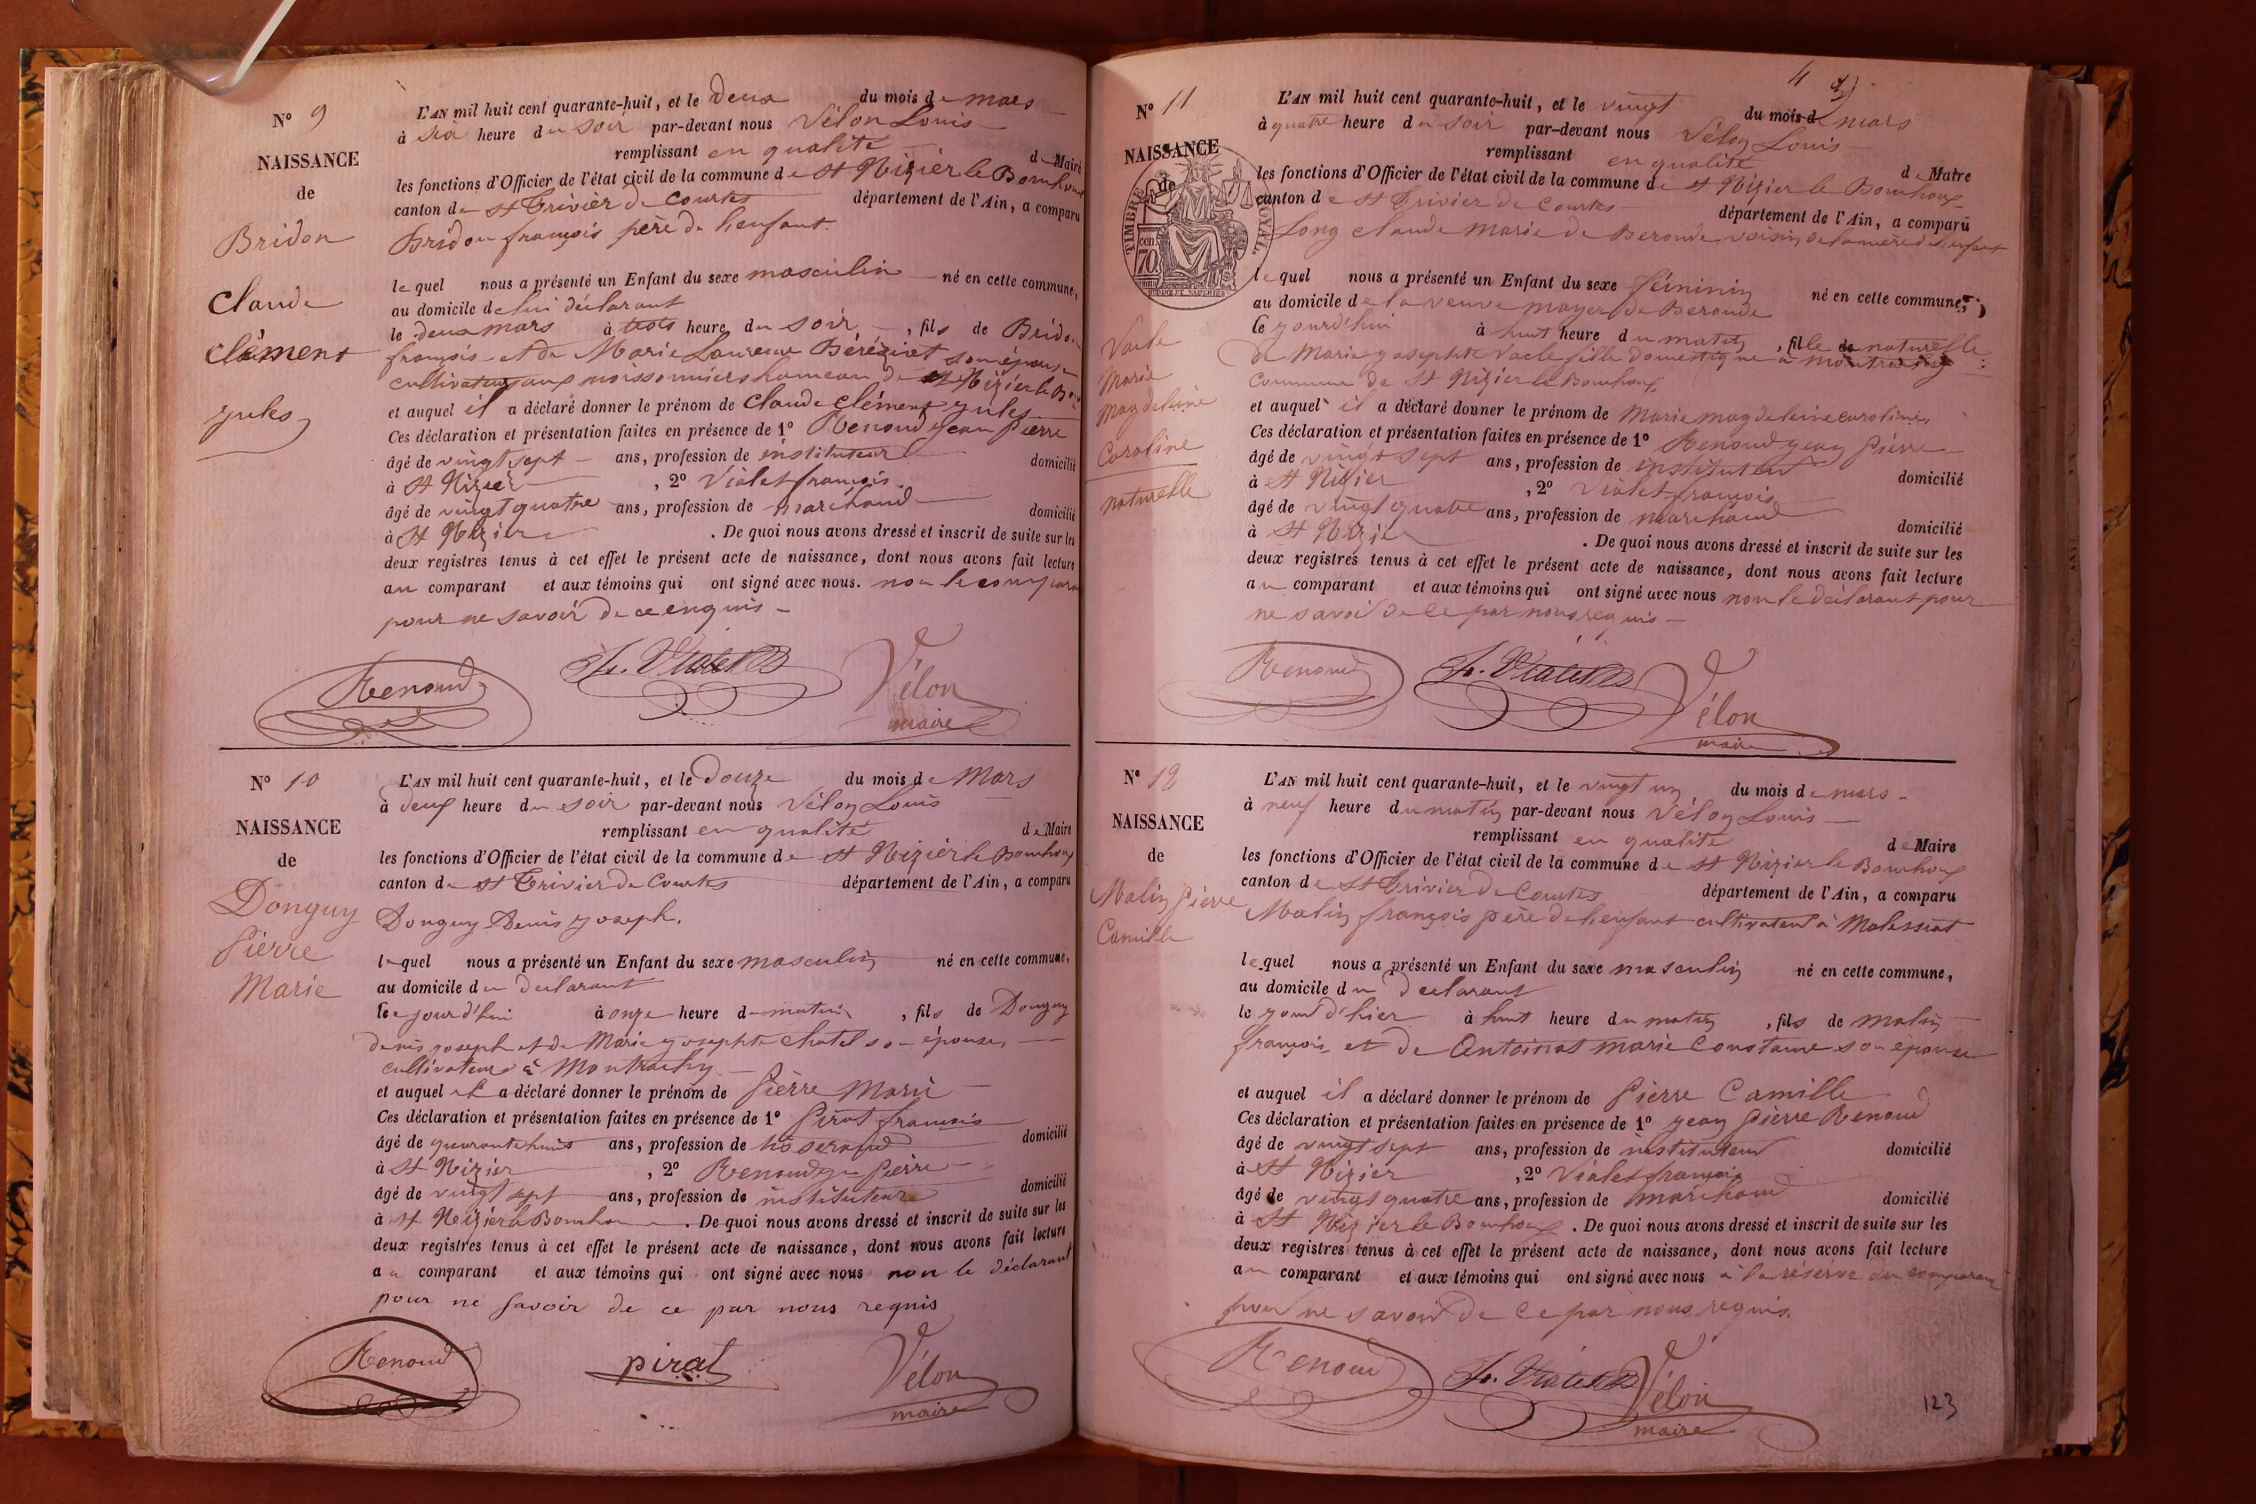 N° 9
NAISSANCE
de
Bridon
Claude
Clément
Jules
L'AN mil huit cent quarante-huit, et le Deux du mois de mars
à six heure du soir par-devant nous Vélon Louis
remplissant en qualité de Maire
les fonctions d'Officier de l'état civil de la commune de St Nizier le Bouchoux
canton de St Trivier de Courtes département de l'Ain, a comparu
Bridon françois père de l'enfant.
lequel nous a présenté un Enfant du sexe masculin né en cette commune,
au domicile de lui déclarant
le deux mars à trois heure du soir, fils de Bridon
françois et de Marie Laurence Bérézriat son épouse
cultivateurs aux moissonniers hameau de St Nizier le Bou
et auquel il a déclaré donner le prénom de Claude Clément Jules
Ces déclaration et présentation faites en présence de 1° Renoud Jean Pierre
âgé de vingt sept ans, profession de instituteur domicilié
à St Nizier, 2° Vialet françois
âgé de vingt quatre ans, profession de marchand domicilié
à St Nizier. De quoi nous avons dressé et inscrit de suite sur les
deux registres tenus à cet effet le présent acte de naissance, dont nous avons fait lecture
au comparant et aux témoins qui ont signé avec nous. non le comparant
pour ne savoir de ce enquis
Renoud F. Vialet Vélon
maire
N° 10
NAISSANCE
de
Donguy
Pierre
Marie
L'AN mil huit cent quarante-huit, et le Douze du mois de Mars
à deux heure du soir par-devant nous Vélon Louis
remplissant en qualité de Maire
les fonctions d'Officier de l'état civil de la commune de St Nizier le Bouchoux
canton de St Trivier de Courtes département de l'Ain, a comparu
Donguy Denis Joseph.
lequel nous a présenté un Enfant du sexe masculin né en cette commune,
au domicile du déclarant
le jourd'hui à onze heure du matin, fils de Donguy
denis joseph et de Marie josephte Chatel son épouse,
cultivateurs à Montrachy
et auquel il a déclaré donner le prénom de Pierre Marie
Ces déclaration et présentation faites en présence de 1° Pirat françois
âgé de quarante huit ans, profession de tisserand domicilié
à St Nizier, 2° Renoud Jn Pierre
âgé de vingt sept ans, profession de instituteur domicilié
à St Nizier le Bouchoux. De quoi nous avons dressé et inscrit de suite sur les
deux registres tenus à cet effet le présent acte de naissance, dont nous avons fait lecture
au comparant et aux témoins qui ont signé avec nous non le déclarant
pour ne savoir de ce par nous requis
Renoud pirat Vélon
maire
4
N° 11
NAISSANCE
de
TIMBRE ROYAL
70 cen
Vacle
Marie
Magdeleine
Caroline
naturelle
L'AN mil huit cent quarante-huit, et le vingt du mois de mars
à quatre heure du soir par-devant nous Vélon Louis
remplissant en qualité de Maire
les fonctions d'Officier de l'état civil de la commune de St Nizier le Bouchoux
canton de St Trivier de Courtes département de l'Ain, a comparu
Long claude Marie de Beronde voisin de la mère de l'enfant
lequel nous a présenté un Enfant du sexe féminin né en cette commune,
au domicile de la veuve moyer de Beronde
le jourd'hui à huit heure du matin, fille naturelle
de Marie josephte Vacle fille domestique à
commune de St Nizier le Bouchoux
et auquel il a déclaré donner le prénom de Marie magdeleine caroline
Ces déclaration et présentation faites en présence de 1° Renoud jean Pierre
âgé de vingt sept ans, profession de instituteur domicilié
à St Nizier, 2° Vialet françois
âgé de vingt quatre ans, profession de marchand domicilié
à St Nizier. De quoi nous avons dressé et inscrit de suite sur les
deux registres tenus à cet effet le présent acte de naissance, dont nous avons fait lecture
au comparant et aux témoins qui ont signé avec nous non le déclarant pour
ne savoir de ce par nous requis
Renoud F. Vialet Vélon
maire
N° 12
NAISSANCE
de
Malin Pierre
Camille
L'AN mil huit cent quarante-huit, et le vingt un du mois de mars
à neuf heure du matin par-devant nous Vélon Louis
remplissant en qualité de Maire
les fonctions d'Officier de l'état civil de la commune de St Nizier le Bouchoux
canton de St Trivier de Courtes département de l'Ain, a comparu
Malin françois père de l'enfant cultivateur à Malessiat
lequel nous a présenté un Enfant du sexe masculin né en cette commune,
au domicile du déclarant
le jour d'hier à huit heure du matin, fils de malin
françois et de Antoinat marie Constance son épouse
et auquel il a déclaré donner le prénom de Pierre Camille
Ces déclaration et présentation faites en présence de 1° jean Pierre Renoud
âgé de vingt sept ans, profession de instituteur domicilié
à St Nizier, 2° Vialet françois
âgé de vingt quatre ans, profession de marchand domicilié
à St Nizier le Bouchoux. De quoi nous avons dressé et inscrit de suite sur les
deux registres tenus à cet effet le présent acte de naissance, dont nous avons fait lecture
au comparant et aux témoins qui ont signé avec nous à la réserve du comparant
pour ne savoir de ce par nous requis.
Renoud F. Vialet Vélon
maire
123